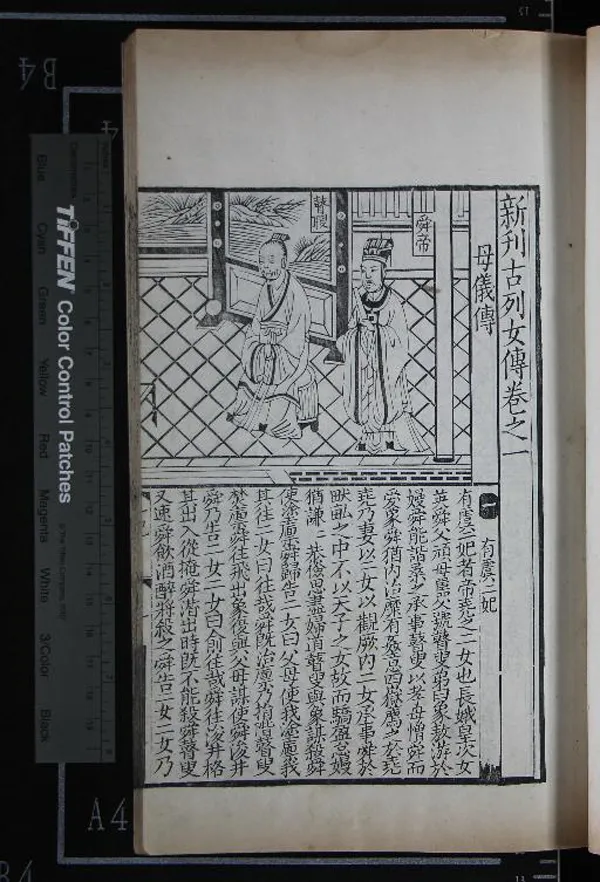 新刊古列女傳卷之一
母儀傳
舜帝
瞽瞍
一 有虞二妃
有虞二妃者帝堯之二女也長娥皇次女
英舜父頑母嚚父號瞽叟弟曰象敖游於
嫚舜能諧柔之承事瞽叟以孝母憎舜而
愛象舜猶内治靡有姦意四嶽薦之於堯
堯乃妻以二女以觀厥内二女承事舜於
畎畝之中不以天子之女故而驕盈怠嫚
猶謙〻恭儉思盡婦道瞽叟與象謀殺舜
使塗廩舜歸告二女曰父母使我塗廩我
其往二女曰往哉舜既治廩乃捐階瞽叟
焚廩舜往飛出象復與父母謀使舜浚井
舜乃告二女二女曰俞往哉舜往浚井格
其出入從掩舜潛出時既不能殺舜瞽叟
又速舜飲酒醉將殺之舜告二女二女乃
TIFFEN Color Control Patches
Blue Cyan Green Yellow Red Magenta White 3/Color Black
B4
A4